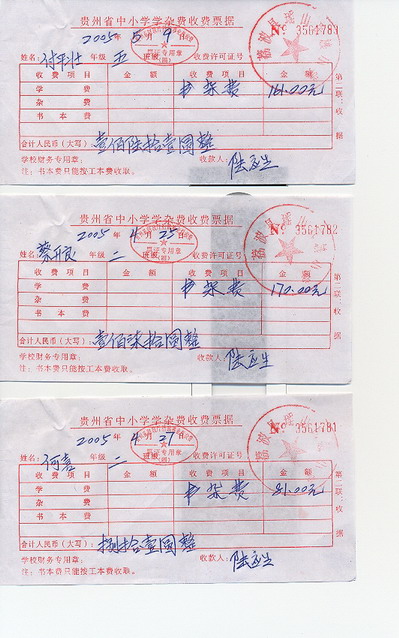 贵州省中小学学杂费收费票据
2005年5月9日 No 3561783
姓名: 年级 五 班级 收费许可证号
收费项目 金额 收费项目 金额
学费 书杂费 161.00元
杂费
书本费
合计人民币(大写): 壹佰陆拾壹圆整
学校财务专用章: 收款人:
注: 书本费只能按工本费收取。
第二联: 收据
贵州省中小学学杂费收费票据
2005年4月25日 No 3561782
姓名: 蔡开良 年级 二 班级 收费许可证号
收费项目 金额 收费项目 金额
学费 书杂费 170.00元
杂费
书本费
合计人民币(大写): 壹佰柒拾圆整
学校财务专用章: 收款人:
注: 书本费只能按工本费收取。
第二联: 收据
贵州省中小学学杂费收费票据
2005年4月27日 No 3561781
姓名: 何喜 年级 二 班级 收费许可证号
收费项目 金额 收费项目 金额
学费 书杂费 81.00元
杂费
书本费
合计人民币(大写): 捌拾壹圆整
学校财务专用章: 收款人:
注: 书本费只能按工本费收取。
第二联: 收据